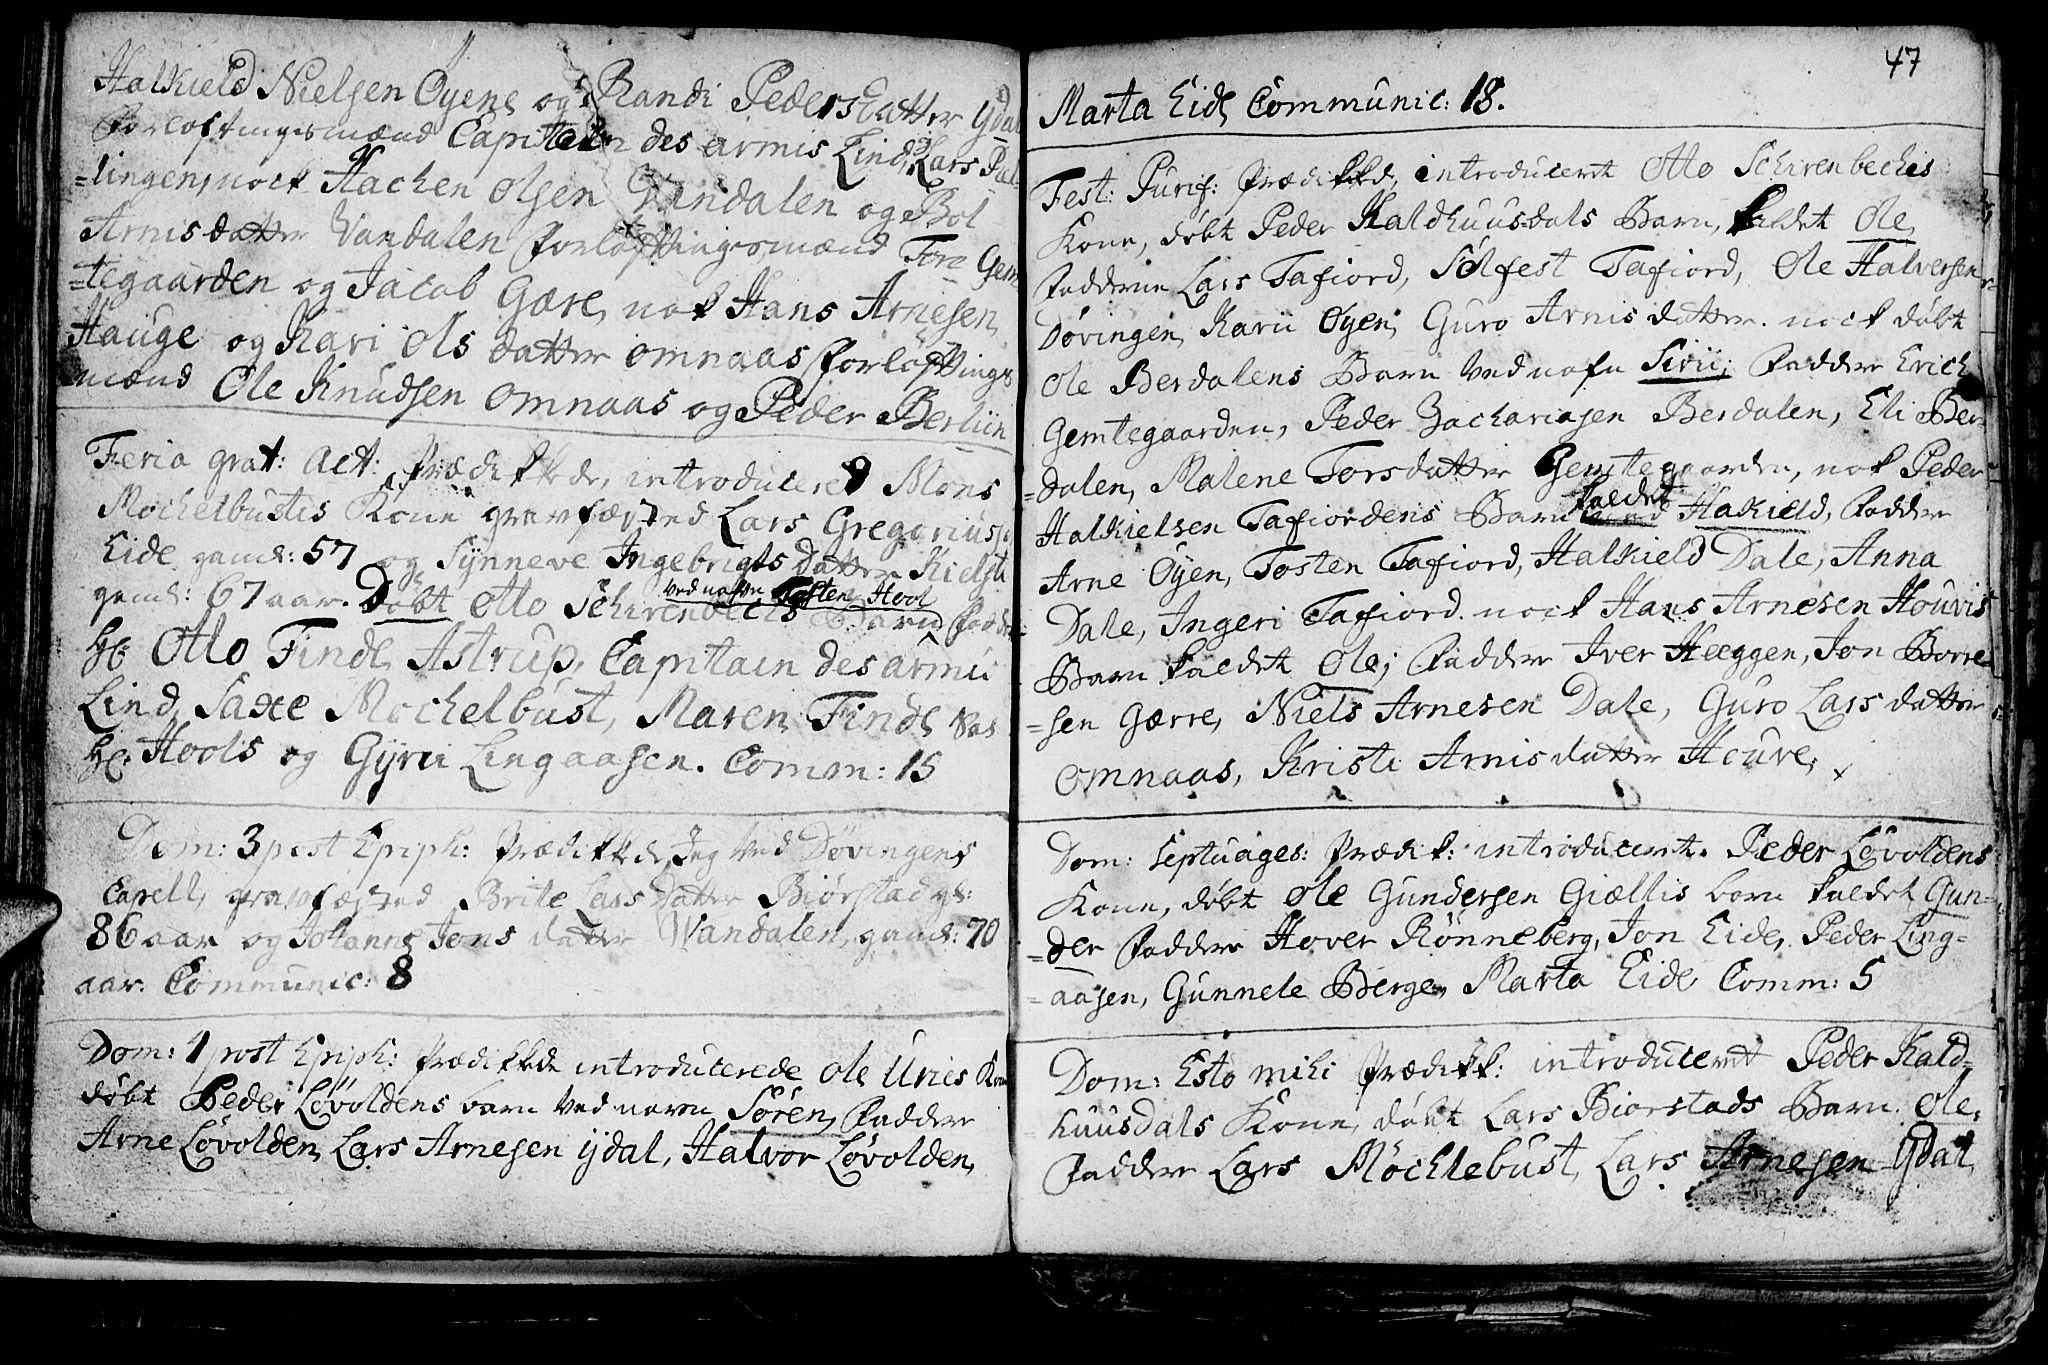 Halkield Nielsen Øyens og Randi Peders Datter Ydal
Forløftingsmænd Capitain des armis Lind, Lars
=lingen, nock Hachen Olsen Vandalen og Bol
Arnis datter Vandalen Forløftingsmænd Tore Gem
=tegaarden og Jacob Gære, nok Hans Arnesen
Hauge og Kari Ols datter Omnaas forløftings
mænd Ole Knudsen Omnaas og Peder Berliin
Feria grat: Act: Prædikkede, introducered Mons
Mochelbustis Kone gravfæsted Lars Gregorius
Eide gaml: 57 og Synneve Ingebrigts datter
gaml: 67 aar. Døbt Otto Schirenbecks Barn
ved nafn Tosten Hool
Hr Otto Finde, Astrup, Capitain des armis
Lind, Saxe Mochelbust, Maren Finde
Hr. Hools og Gyrii Lingaasen. Comm: 15
Dom: 3 post Epiph: Prædikkede Jeg ved Døvingens
Capell, gravfæsted Brite Lars datter Biørstad gl:
86 aar og Johanne Jons datter Wandalen, gaml: 70
aar. Communic: 8
Dom: 4 post Epiph: Prædikkede introducerede Ole Uries Kone
døbt Peder Løvoldens barn ved navn Søren, Fadder
Arne Løvolden, Lars Arnesen ijdal, Halvor Løvolden,
47
Marta Eide Communic: 18.
Fest: Purif: Prædikkede, introducerit Otto Schirenbechis
Kone, døbt Peder Kaldhuusdals Barn, kaldet Ole,
Fadderne Lars Tafiord, Sølfest Tafiord, Ole Halversen
Døvingen, Karii Øyen, Guro Arnis datter. nock døbt
Ole Berdalens Barn ved nafn Sirii; Fadder Erich
Gemtegaarden, Peder Zachariasen Berdalen, Eli Ber=
=dalen, Malene Torsdatter Gemtegaarden, nok Peder
Halkielsen Tafiordens Barn kaldet Hakield, Fadder
Arne Øyen, Tosten Tafiord, Halkield Dale, Anna
Dale, Ingeri Tafiord. nock Hans Arnesen Houvis
Barn kaldet Ole; Fadder Iver Heggen, Jon Borre=
=sen Gærre, Niels Arnesen Dale, Guro Lars datter
Omnaas, Kristi Arnis datter Houve,
Dom: Septuages: Prædik: introducerit Peder Løvoldens
Kone, døbt Ole Gundersen Giællis barn kaldet Gun=
=der Fadder Hover Rønneberg, Jon Eide, Peder Ling=
=aasen, Gunnele Berge, Marta Eide Comm: 5
Dom: Esto mihi Prædikk: introducerit Peder Kald=
huusdals Kone, døbt Lars Biorstads Barn. Ole,
Fadder Lars Møchlebust, Lars Arnesen Ydal,